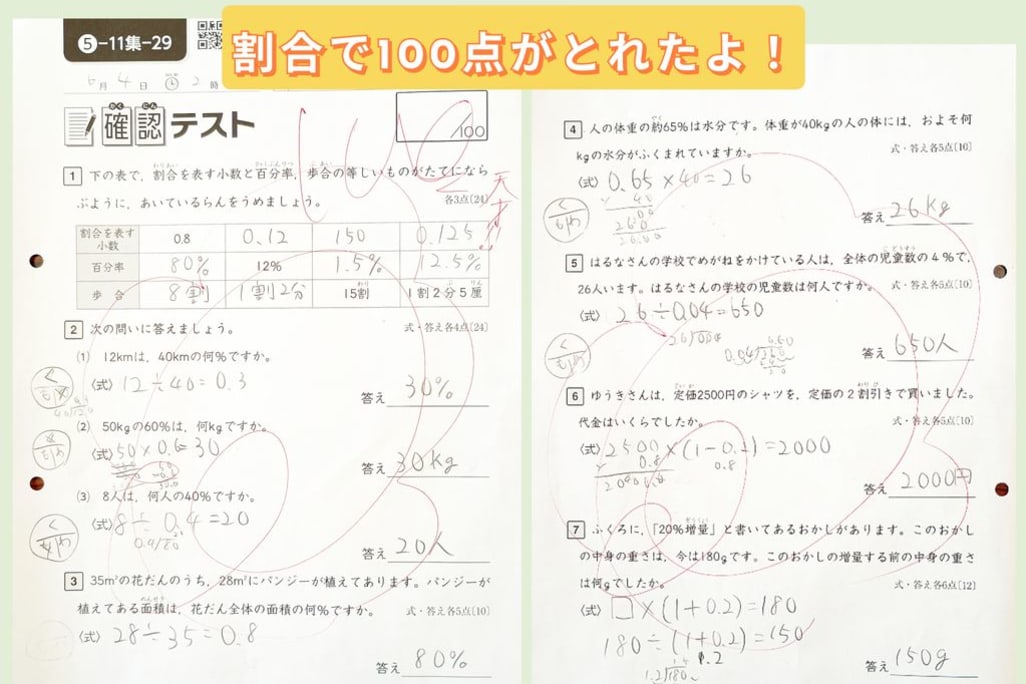 割合で100点がとれたよ！
5-11集-29
6月4日 2時
確認テスト
100
/100
天才!!
1 下の表で，割合を表す小数と百分率，歩合の等しいものがたてになら
ぶように，あいているらんをうめましょう。 各3点〔24〕
割合を表す小数 0.8 0.12 150 0.125
百分率 80% 12% 1.5% 12.5%
歩合 8割 1割2分 15割 1割2分5厘
2 次の問いに答えましょう。 式・答え各4点〔24〕
(1) 12kmは，40kmの何%ですか。
(式) 12÷40=0.3
答え 30%
(2) 50kgの60%は，何kgですか。
(式) 50×0.6=30
答え 30kg
(3) 8人は，何人の40%ですか。
(式) 8÷0.4=20
答え 20人
3 35m²の花だんのうち，28m²にパンジーが植えてあります。パンジーが
植えてある面積は，花だん全体の面積の何%ですか。 式・答え各5点〔10〕
(式) 28÷35=0.8
答え 80%
4 人の体重の約65%は水分です。体重が40kgの人の体には，およそ何
kgの水分がふくまれていますか。 式・答え各5点〔10〕
(式) 0.65×40=26
答え 26kg
5 はるなさんの学校でめがねをかけている人は，全体の児童数の4%で，
26人います。はるなさんの学校の児童数は何人ですか。 式・答え各5点〔10〕
(式) 26÷0.04=650
答え 650人
6 ゆうきさんは，定価2500円のシャツを，定価の2割引きで買いました。
代金はいくらでしたか。 式・答え各5点〔10〕
(式) 2500×(1-0.2)=2000
0.8
答え 2000円
7 ふくろに，「20%増量」と書いてあるおかしがあります。このおかし
の中身の重さは，今は180gです。このおかしの増量する前の中身の重さ
は何gでしたか。 式・答え各6点〔12〕
(式) □×(1+0.2)=180
180÷(1+0.2)=150
1.2
答え 150g